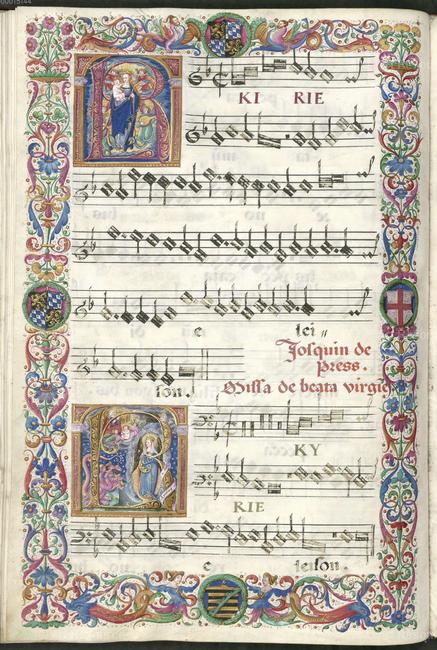 00015144
KI RIE
e lei
son.
Josquin de
press.
Missa de beata virgie
KY
RIE
e leison.